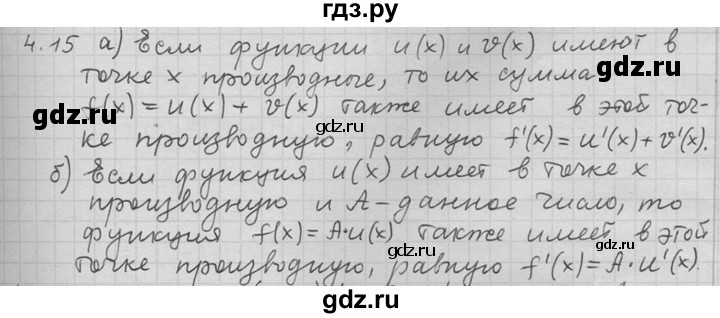 гдз.ру
4.15 а) Если функции u(x) и v(x) имеют в
точке x производные, то их сумма
f(x) = u(x) + v(x) также имеет в этой точ-
ке производную, равную f'(x) = u'(x) + v'(x).
б) Если функция u(x) имеет в точке x
производную и A - данное число, то
функция f(x) = A·u(x) также имеет в этой
точке производную, равную f'(x) = A·u'(x).
gdz.ru
gdz.ru
gdz.ru
gdz.ru
gdz.ru
gdz.ru
gdz.ru
gdz.ru
gdz.ru